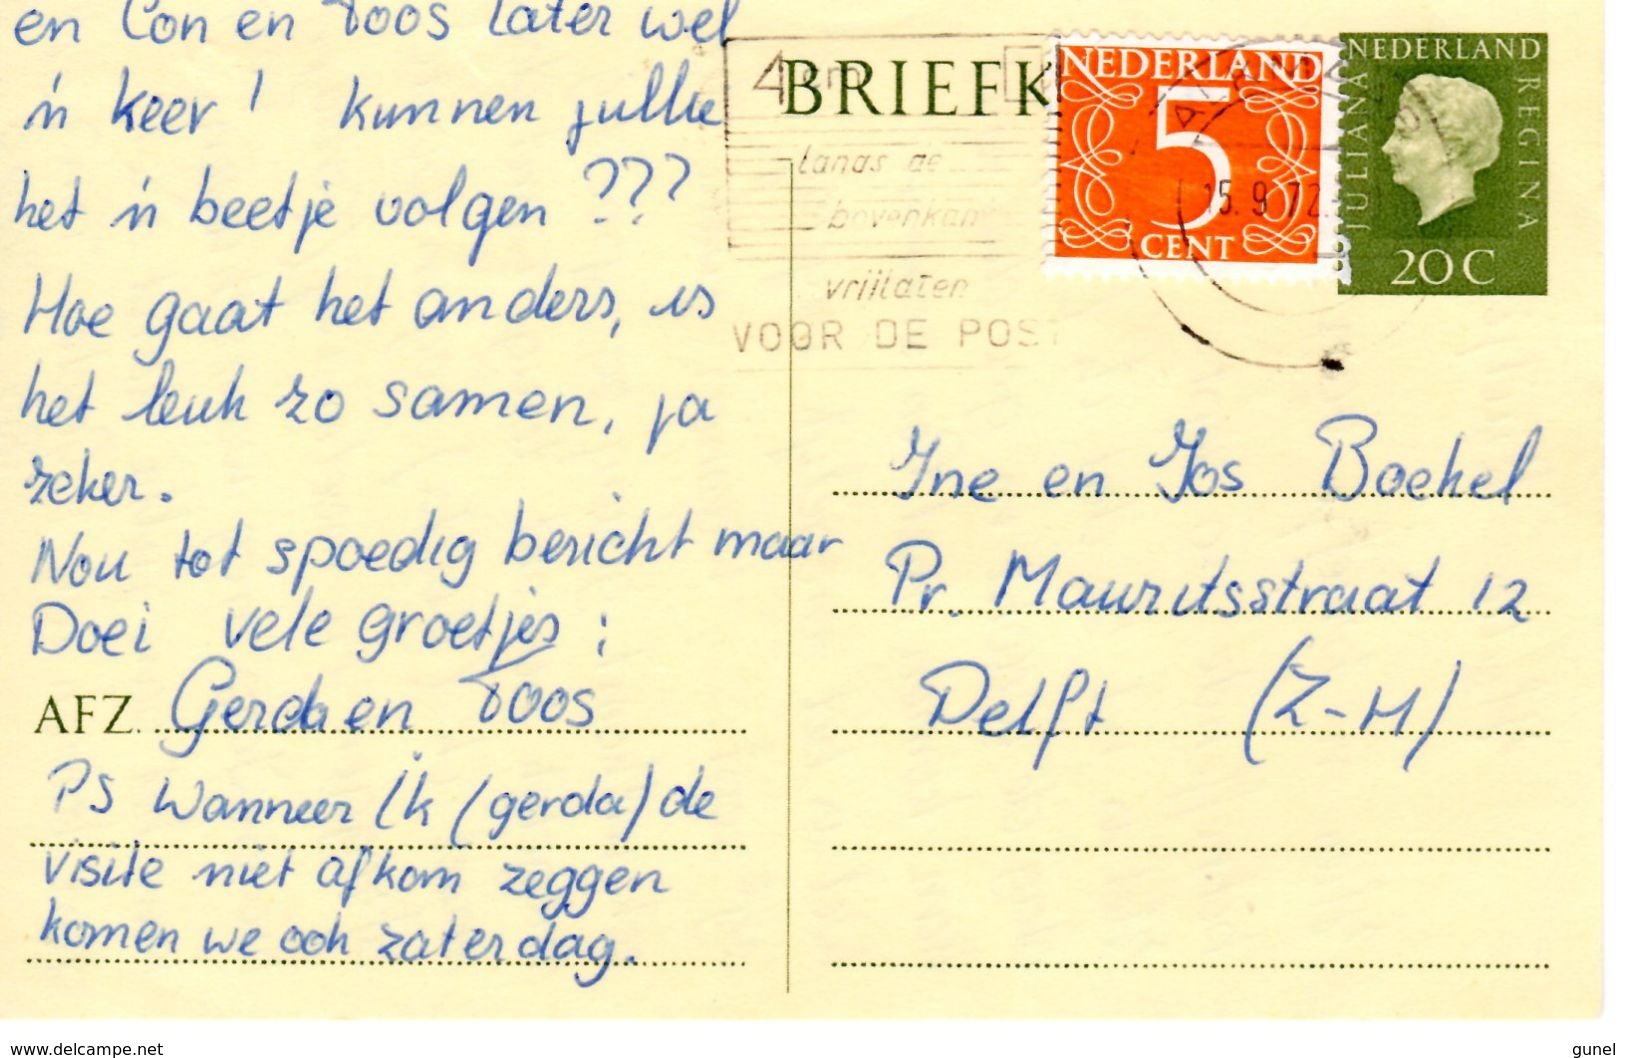 en Con en Toos later wel
'n keer! kunnen jullie
het 'n beetje volgen ???
Hoe gaat het anders, is
het leuk zo samen, ja
zeker.
Nou tot spoedig bericht maar
Doei vele groetjes :
AFZ. Gerda en Toos
PS Wanneer ik (gerda) de
visite niet afkom zeggen
komen we ook zaterdag.
4 cm
langs de
bovenkant
vrijlaten
VOOR DE POST
BRIEFK
NEDERLAND
5
CENT
15.9.72
NEDERLAND
JULIANA
REGINA
20 C
Ine en Jos Boekel
Pr. Mauritsstraat 12
Delft (Z-H)
www.delcampe.net
gunel